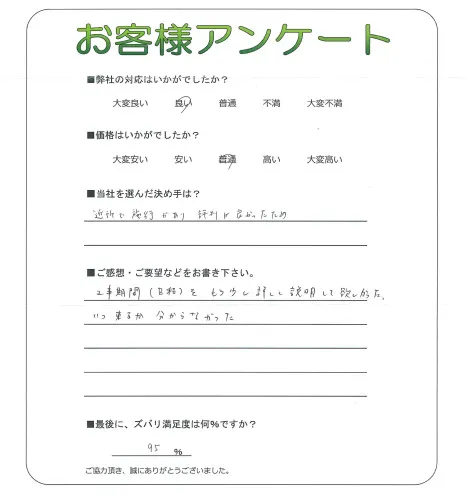 お客様アンケート
■弊社の対応はいかがでしたか？
大変良い 良い 普通 不満 大変不満
■価格はいかがでしたか？
大変安い 安い 普通 高い 大変高い
■当社を選んだ決め手は？
近所で施工があり 評判が良かったため
■ご感想・ご要望などをお書き下さい。
工事期間（日程）を もう少し詳しく説明して欲しかった。
いつ来るか 分からなかった
■最後に、ズバリ満足度は何％ですか？
95 ％
ご協力頂き、誠にありがとうございました。